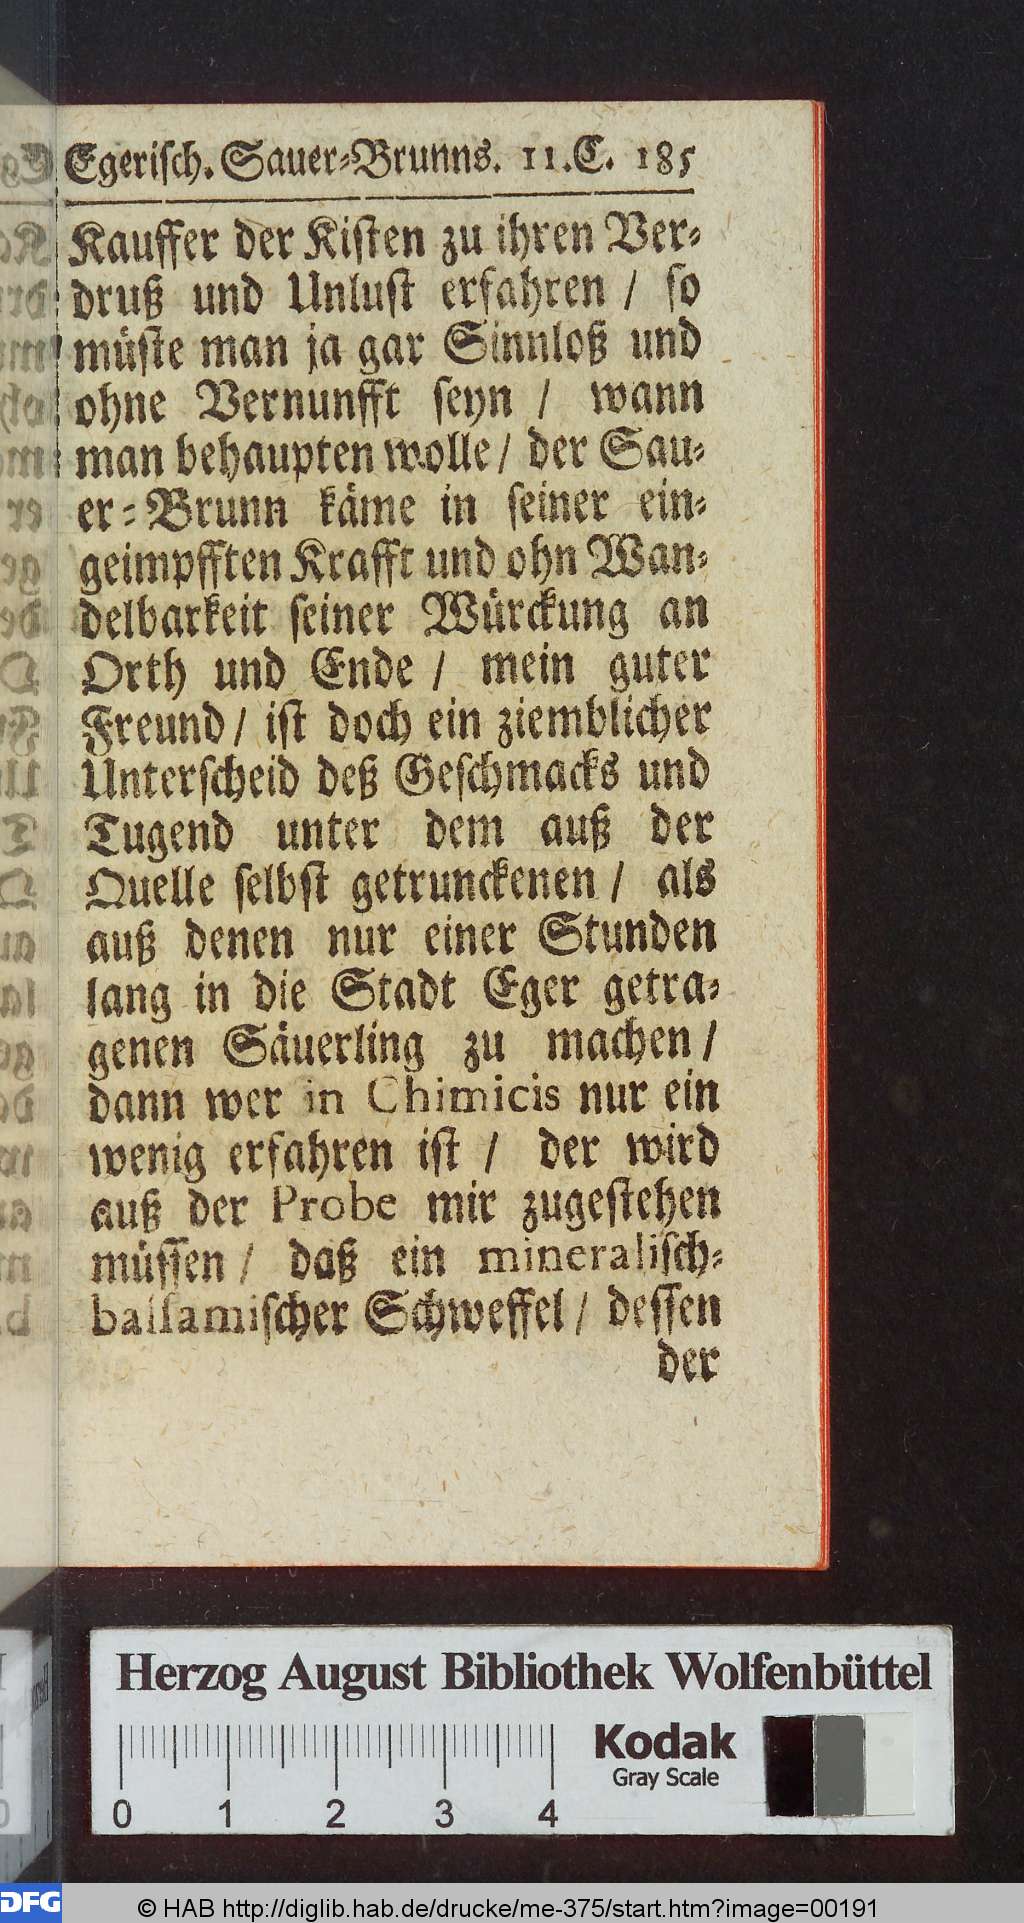 Egerisch. Sauer-Brunns. 11.C. 185
Kauffer der Kisten zu ihren Ver-
druß und Unlust erfahren / so
müste man ja gar Sinnloß und
ohne Vernunfft seyn / wann
man behaupten wolle / der Sau-
er-Brunn käme in seiner ein-
geimpfften Krafft und ohn Wan-
delbarkeit seiner Würckung an
Orth und Ende / mein guter
Freund / ist doch ein ziemblicher
Unterscheid deß Geschmacks und
Tugend unter dem auß der
Quelle selbst getrunckenen / als
auß denen nur einer Stunden
lang in die Stadt Eger getra-
genen Säuerling zu machen /
dann wer in Chimicis nur ein
wenig erfahren ist / der wird
auß der Probe mir zugestehen
müssen / daß ein mineralisch-
balsamischer Schweffel / dessen
der
Herzog August Bibliothek Wolfenbüttel
Kodak
Gray Scale
0 1 2 3 4
DFG
© HAB http://diglib.hab.de/drucke/me-375/start.htm?image=00191